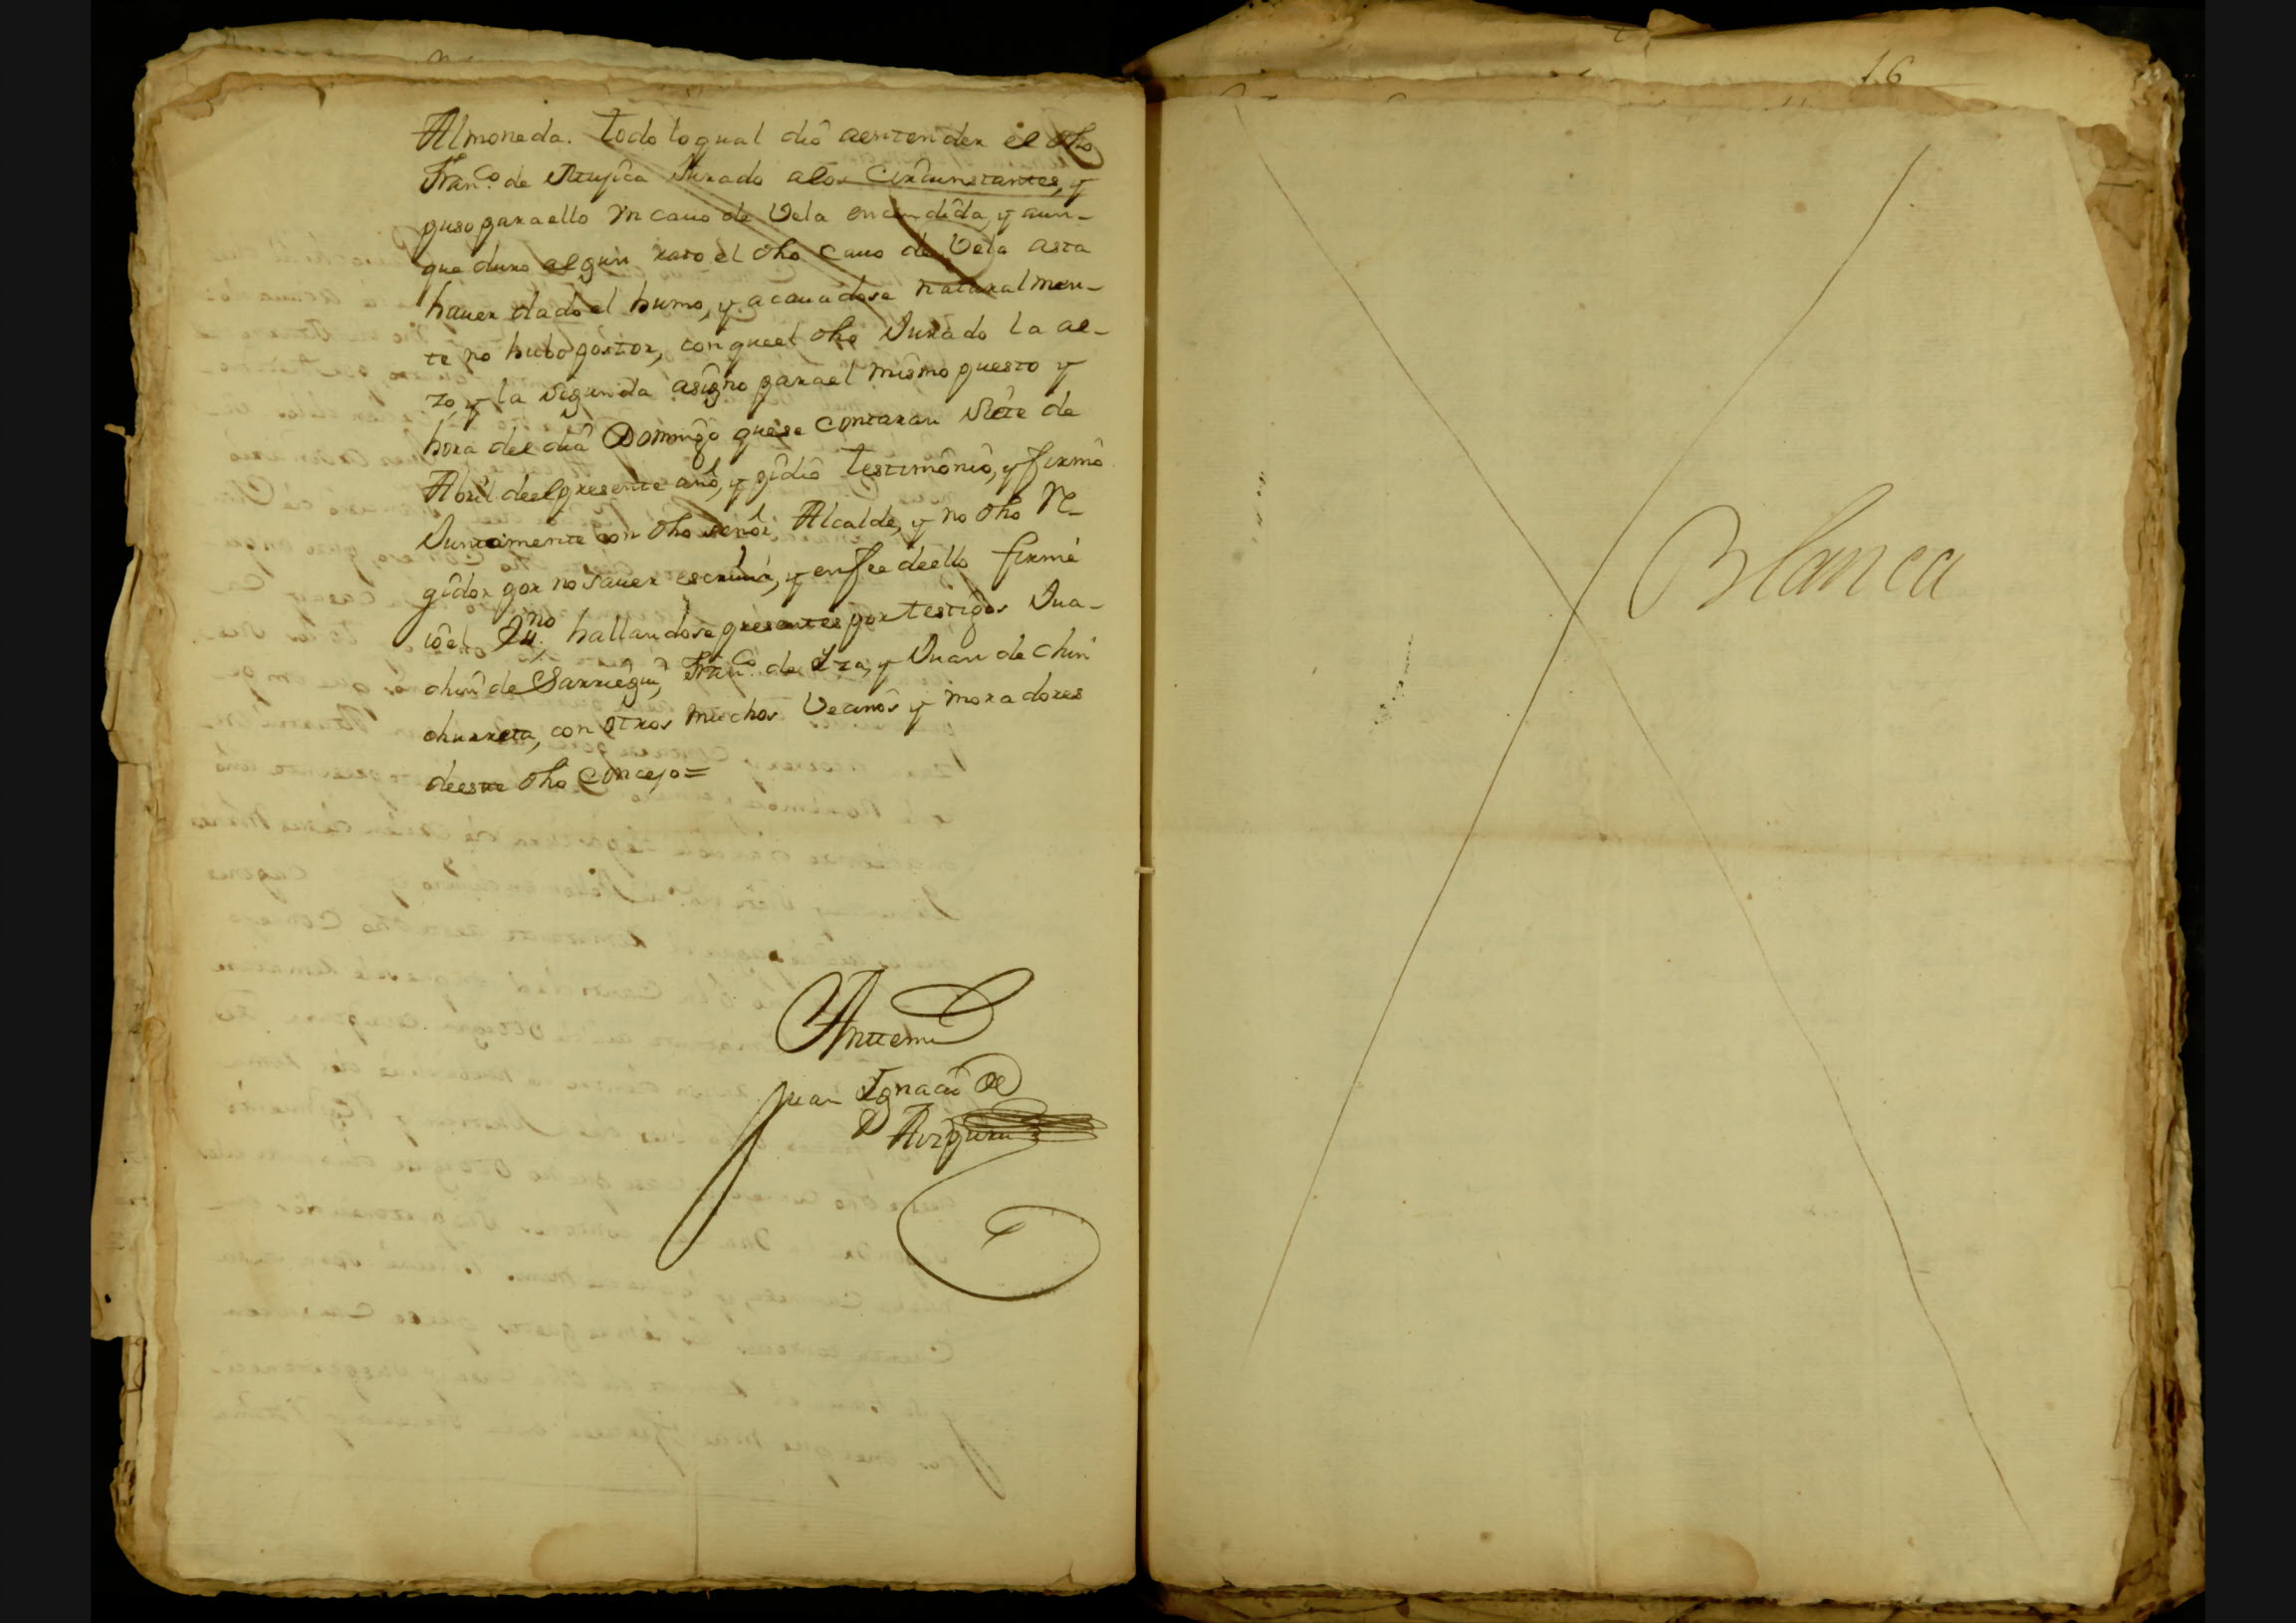 Almoneda. Todo loqual dió aentender el dho
Fran.co de Muxica Jurado alos Circunstantes, y
puso para ello Vn cauo de Vela encendida, y aun-
que duro algun rato el dho cauo de Vela asta
hauer dado el humo, y acauadose naturalmen-
te no hubo postor, con que el dho Jurado la al-
zo, y la segunda asigno para el mismo puesto y
hora del dia Domingo quese contaran siete de
Abril deel presente año, y pidio testimonio, y firmó
Juntamente con dho señor Alcalde, y no dho Re-
gidor por no sauer escriuir, y en fee deello firmé
io el ss.no hallandose presentes por testigos Jua-
chin de Sarriegui, Fran.co de Yza, y Juan de Chin
churreta, con otros muchos Vecinos y moradores
deeste dho Concejo=
Antemi
Juan Ignacio de
Aizpuru
16
Blanca